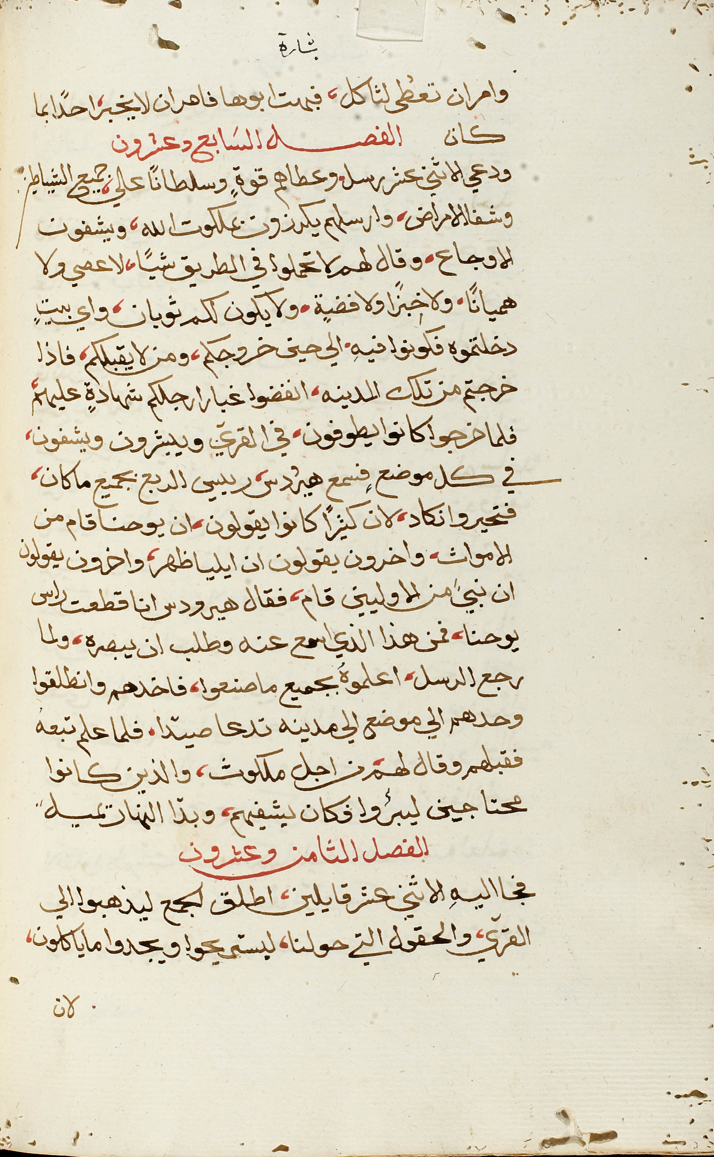 بشارة
وامر ان تعطى لتاكل، فبهت ابوها فامر ان لا يخبر احدًا بما
كان الفصل السابع وعشرون
ودعي الاثني عشر رسل وعطاهم قوةٍ وسلطانًا علي جميع الشياطين
وشفا الامراض، وارسلهم يكرزون بملكوت الله، ويشفون
الاوجاع، وقال لهم لا تحملوا في الطريق شيًا، لا عصي ولا
هميانًا، ولا خبزًا ولا فضةٍ، ولا يكون لكم ثوبان، واي بيتٍ
دخلتموه فكونوا فيهِ الي حين خروجكم، ومن لا يقبلكم، فاذا
خرجتم من تلك المدينه، انفضوا غبار ارجلكم شهادةٍ عليهم
فلما خرجوا كانوا يطوفون، في القرىّ ويبشرون ويشفون،
في كل موضع فسمع هيردس، رييس الربع بجميع ما كان،
فتحير وانكاد، لان كثيرًا كانوا يقولون، ان يوحنا قام من
الاموات، واخرون يقولون ان ايليا ظهر، واخرون يقولون
ان نبيً من الاوليين قام، فقال هيرودس انا قطعت راس
يوحنا، فمن هذا الذي اسمع عنه وطلب ان يبصره، ولما
رجع الرسل، اعلموهُ بجميع ما صنعوا، فاخدهم وانطلقوا
وحدهم الي موضع الي مدينه تدعا صيدا، فلما علم تبعهُ
فقبلهم وقال لهم من اجل ملكوت، والذين كانوا
محتاجين ليبرُوا فكان يشفيهم، وبدا النهار يميل
الفصل الثامن وعشرون
فجا اليهِ الاثني عشر قايلين، اطلق الجمع ليذهبوا الي
القرىّ، والحقول التي حولنا، ليستريحوا ويجدوا ما ياكلون،
لان